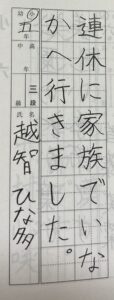 連休に家族でいな
かへ行きました。
小五年
中高年
三段
級
氏名 越智ひな多